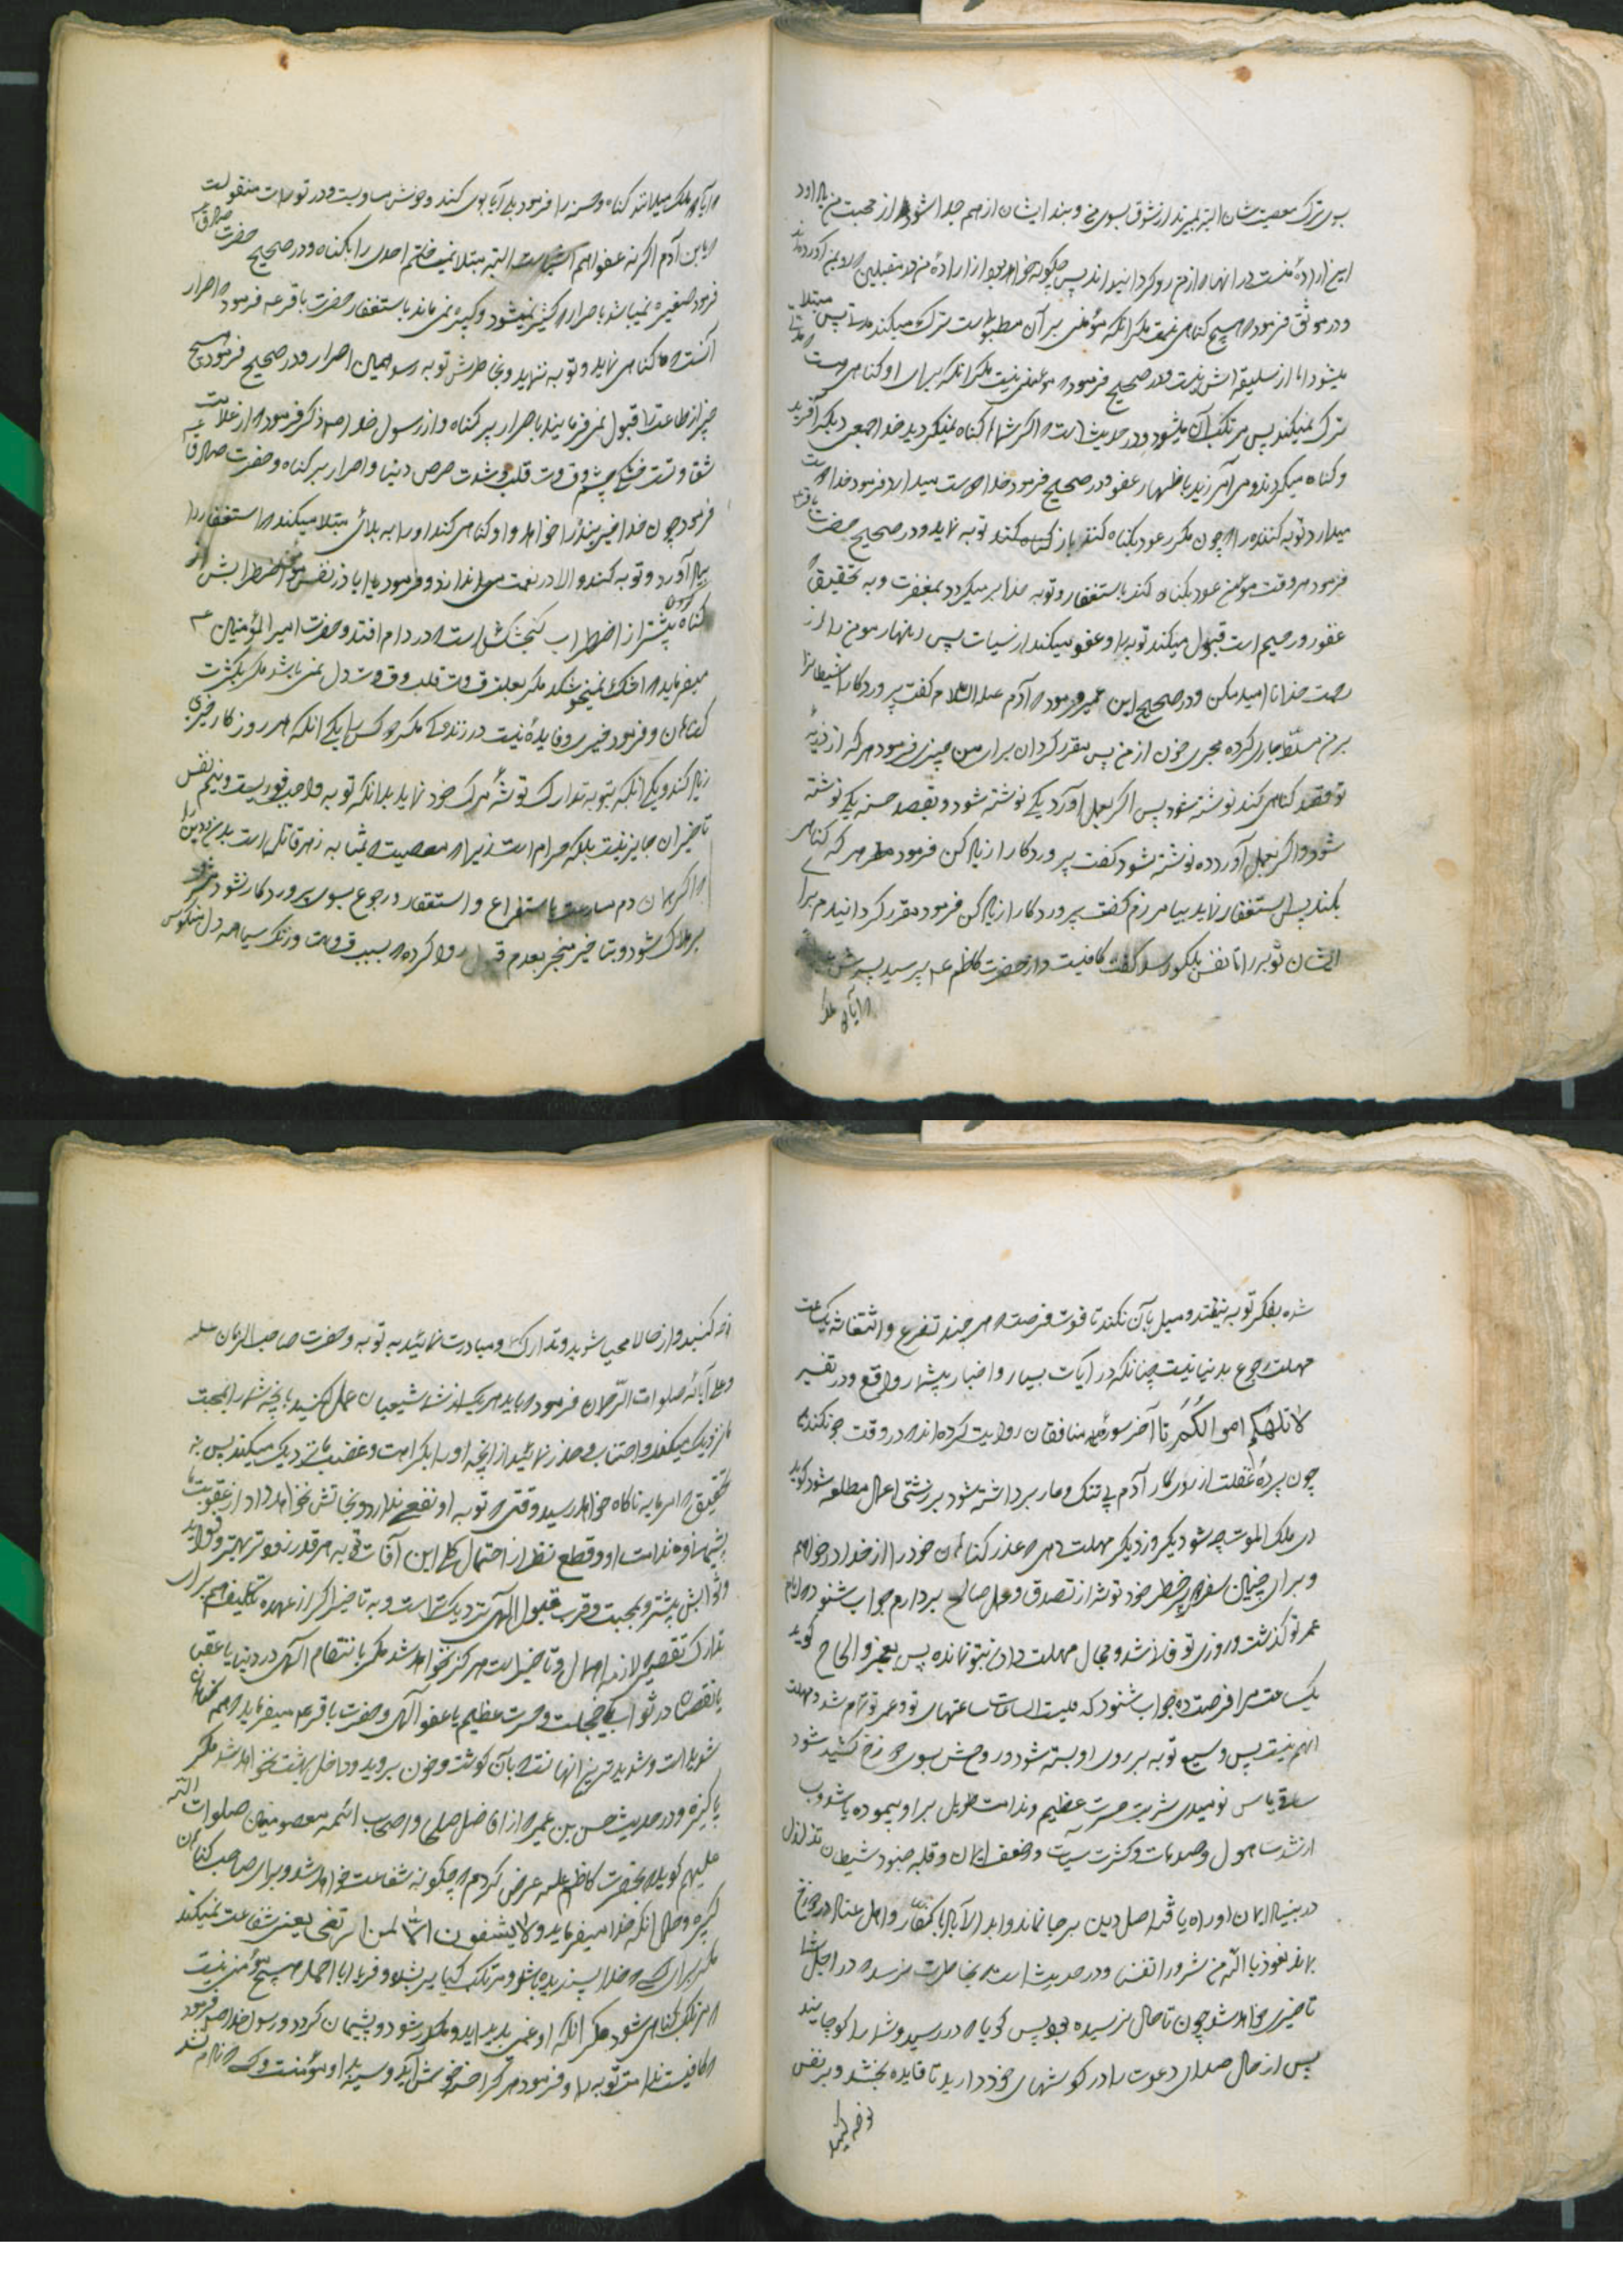 بسوی ترک معصیت شان البته بمیرند از شوق بسوی من و بند ایشان از هم جدا شود از محبت من یا داود
این ارادهٔ منست در انها که از من رو گردانیده اند پس چگونه خواهد بود ارادهٔ من در مقبلین که رو بمن آورده اند
و در موثق فرمود که هیچ گناهی نیست مگر انکه مؤمنی بر آن مطبوع است ترک میکند مدتی پس مبتلا
میشود اما از سلیقه اش نیست و در صحیح فرمود که مؤمنی نیست مگر انکه برای او گناهی هست که مدتی
ترک نمیکند پس مرتکب آن میشود و در حدیث است که اگر شما گناه نمیکردید خدا جمعی دیگر آفرید
و گناه میکردند و می آمرزید باظهار عفو و در صحیح فرمود خدا دوست میدارد فرمود خدا دوست
میدارد توبه کننده را که چون مکرر عود بگناه کند باز توبه نماید و در صحیح حضرت باقر ع
فرمود هر وقت مؤمن عود بگناه کند باستغفار و توبه خدا بر میگردد بمغفرت و به تحقیق که
غفور و رحیم است قبول میکند توبه را و عفو میکند از سیات پس زینهار مومن را از
رحمت خدا نا امید مکن و در صحیح ابن عمیر فرمود که آدم علیه السلام گفت پروردگارا شیطانرا
بر من مسلط و جاری کرده مجری خون از من پس مقرر گردان برای من چیزی فرمود هر که از ذریهٔ
تو قصد گناهی کند نوشته نشود پس اگر بعمل آورد یکی نوشته شود و بقصد حسنه یکی نوشته
شود و اگر بعمل آورد ده نوشته شود گفت پروردگارا زیاد کن فرمود هر که گناهی
بکند پس استغفار نماید بیامرزم گفت پروردگارا زیاد کن فرمود مقرر گردانیدم برای
ایشان توبه را تا نفس بگلو رسد گفت کافیست و از حضرت کاظم ع پرسید پسرش
که آیا دو ملک
که آیا دو ملک میدانند گناه و حسنه را فرمود بلی آیا بوی گند و خوش مساویست و در تورات منقولست
که یا بن آدم اگر نه عفو اهم اشیاست البته مبتلا نمیساختم احدی را بگناه و در صحیح حضرت صادق ع
فرمود صغیره نمیباشد باصرار که کثیر نمیشود و کبیره نمی ماند باستغفار حضرت باقر ع فرمود که اصرار
آنست که گناهی نماید و توبه ننماید و بخاطرش توبه نرسد همین اصرار و در صحیح فرمود هیچ
چیز از طاعت را قبول نمی فرمایند باصرار بر گناه و از رسول خدا ص ذکر فرمود که از علامت
شقاوتست خشکی چشم و قساوت قلب و شدت حرص دنیا و اصرار بر گناه و حضرت صادق ع
فرمود چون خدا خیر بنده را خواهد و او گناهی کند او را به بلائی مبتلا میکند که استغفار را
بیاد آورد و توبه کند و الا در نعمت میدارد و فرمود یا اباذر نفس مؤمن اضطرابش از
گناه بیشتر از اضطراب گنجشگی است که در دام افتد و حضرت امیر المؤمنین ع
میفرماید که اشک نمیخوشکد مگر بعلت قساوت قلب و قساوت دل نمی باشد مگر بکثرت
گناهان و فرمود خیری و فایدهٔ نیست در زندگی مگر دو کس را یکی انکه هر روز کار خیری
زیاد کند و یکی انکه بتوبه تدارک توشهٔ مرگ خود نماید بدانکه توبه واجب فوریست و نیم نفس
تاخیر ان جایز نیست بلکه حرام است زیرا که معصیت بمثابه زهر قاتل است بدن و دین را
که اگر همان دم مبادرت باستفراغ و استغفار و رجوع بسوی پروردگار نشود منجر
بهلاک شود و بتاخیر منجر بعدم قبول روا کرده که بسبب قساوت و زنگ سیاهی دل منکوس
شده بفکر توبه نیفتد و میل بآن نکند تا فوت فرصت که هر چند تضرع و استغاثه یکساعت
مهلت رجوع بدنیا نیست چنانکه در آیات بسیار و اخبار بیشمار واقع و در تفسیر
لا تلهکم اموالکم تا آخر سورهٔ منافقان روایت کرده اند که در وقت جان کندن
چون پردهٔ غفلت از روی کار آدم بی ننگ و عار برداشته شود بر زشتی اعمال مطلع شود گوید
ای ملک الموت چه شود دیگر روز دیگر مهلت دهی که عذر گناهان خود را از خدا در خواهم
و برای چنین سفر پر خطر خود توشه از تصدق و عمل صالح بردارم جواب شنود که ایام
عمر تو گذشت و روزی تو فانی شد و مجال مهلت دادن بتو نمانده پس بعجز و الحاح گوید
یکساعت مرا فرصت ده جواب شنود که فنیت الساعات ساعتهای تو و عمر تو تمام شد و مهلت
انهم نیست پس وسیع توبه بر روی او بسته شود و روحش بسوی دوزخ کشید شود
ساقی یاس نومیدی شربت حسرت عظیم و ندامت طویل براو پیموده باشد و بسا
از شدت هول و صدمات و کثرت سیآت و ضعف ایمان و غلبه جنود شیطان تزلزل
در بنیاد ایمان او راه یافته اصل دین بر جا نماند و ابد الآباد با کفار و اهل عناد در دوزخ
بماند نعوذ بالله من شرور انفسنا و در حدیث است که بخاطرت نرسد که در اجل شما
تاخیری خواهد شد چون تا حال نرسیده بود پس گویا که در رسید و شما را کوچانید
پس از حال صدای دعوت را در گوشهای خود دارید تا فایده بخشد و بر نفس
نوحه کنید
نوحه کنید و از حالا مهیا شوید و تدارک و مبادرت نمائید به توبه و حضرت صاحب الزمان علیه
و علی آبائه صلوات الرحمان فرمود که باید هر یک از شما شیعیان عمل کنید بانچه شما را بمحبت
ما نزدیک میکند و اجتناب و حذر نمائید از انچه او را بکراهت و غضب ما نزدیک میکند پس به
تحقیق که امر ما به ناگاه خواهد رسید وقتی که توبه او نفع ندارد و نجاتش نخواهد داد از عقوبت ما
پشیمانی و ندامت او و قطع نظر از احتمال کل این آفات توبه هر قدر زودتر بهتر و فوایدش
و ثوابش بیشتر و بمحبت و قرب قبول الهی نزدیکتر است و به تاخیر اگر از عهده تکلیف هم برآید
تدارک تقصیر لازمه اهمال و تاخیر است هرگز نخواهد شد مگر بانتقام الهی در دنیا یا عقبی
یا نقصان در ثواب یا خجلت و حسرت عظیم یا عفو آلهی و حضرت باقر ع میفرماید همه گناهان
شدید است و شدیدترین انها انست که بآن گوشت و خون بروید و داخل بهشت نخواهد شد مگر
پاکیزه و در حدیث حسن بن عمیر که از افاضل صلحا و اصحاب ائمه معصومین صلوات الله
علیهم گوید که بحضرت کاظم ع عرض کردم که چگونه شفاعت خواهد شد و برای صاحب گناهان
کبیره و حال انکه خدا میفرماید و لا یشفعون الا لمن ارتضی یعنی شفاعت نمیکنند
مگر برای کسی که خدا پسندیده باشد و مرتکب کبایر نشده فرمود یا ابا احمد هیچ مؤمنی نیست
که مرتکب گناهی شود مگر انکه او غمی بدید آید و مکدر شود و پشیمان گردد و رسول خدا ص فرمود
که کافیست ندامت توبه را و فرمود هر که را حسنه خوش آید و سیئه بد آید او مؤمنست و کسی که نادم نشد